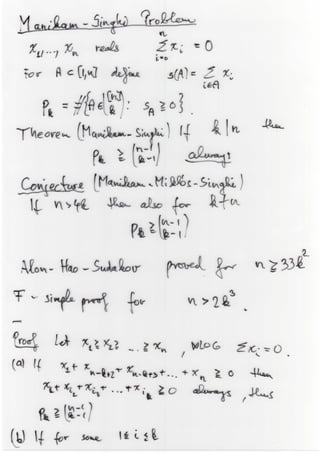 Manikam-Singhi Problem
x₁,..., xₙ reals   ∑ᵢ₌₀ⁿ xᵢ = 0
For A ⊂ [1,n] define   s(A) = ∑_{i∈A} xᵢ
P_k = #{A ∈ ([n] k) : s_A ≥ 0}
Theorem (Manikam-Singhi) If k|n then
P_k ≥ (n-1 k-1) always!
Conjecture (Manikam-Miklós-Singhi)
If n > 4k then also for k∤n
P_k ≥ (n-1 k-1)
Alon-Hao-Sudakov proved for n ≥ 33k²
F - simple proof for n > 2k³.
Proof Let x₁ ≥ x₂ ≥ ... ≥ xₙ, WLOG ∑xᵢ = 0.
(a) If x₁ + x_{n-k+2} + x_{n-k+3} + ... + xₙ ≥ 0 then
x₁ + x_{i₂} + x_{i₃} + ... + x_{i_k} ≥ 0 always, thus
P_k ≥ (n-1 k-1)
(b) If for some 1 ≤ i ≤ k